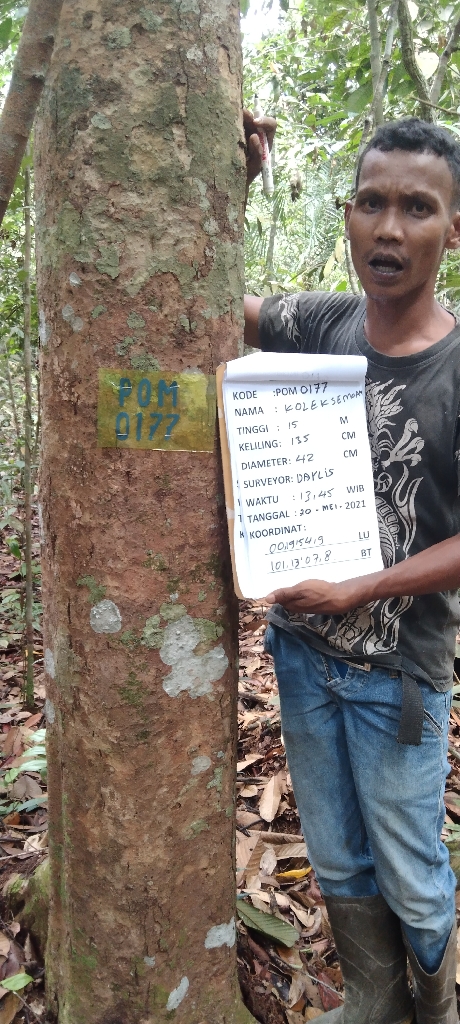 POM
0177
KODE :POM 0177
NAMA : KOLEKSEMPAN
TINGGI : 15 M
KELILING: 135 CM
DIAMETER: 42 CM
SURVEYOR: DAYLIS
WAKTU : 13.45 WIB
TANGGAL : 20 - MEI - 2021
KOORDINAT:
LU
101.13'07.8 BT